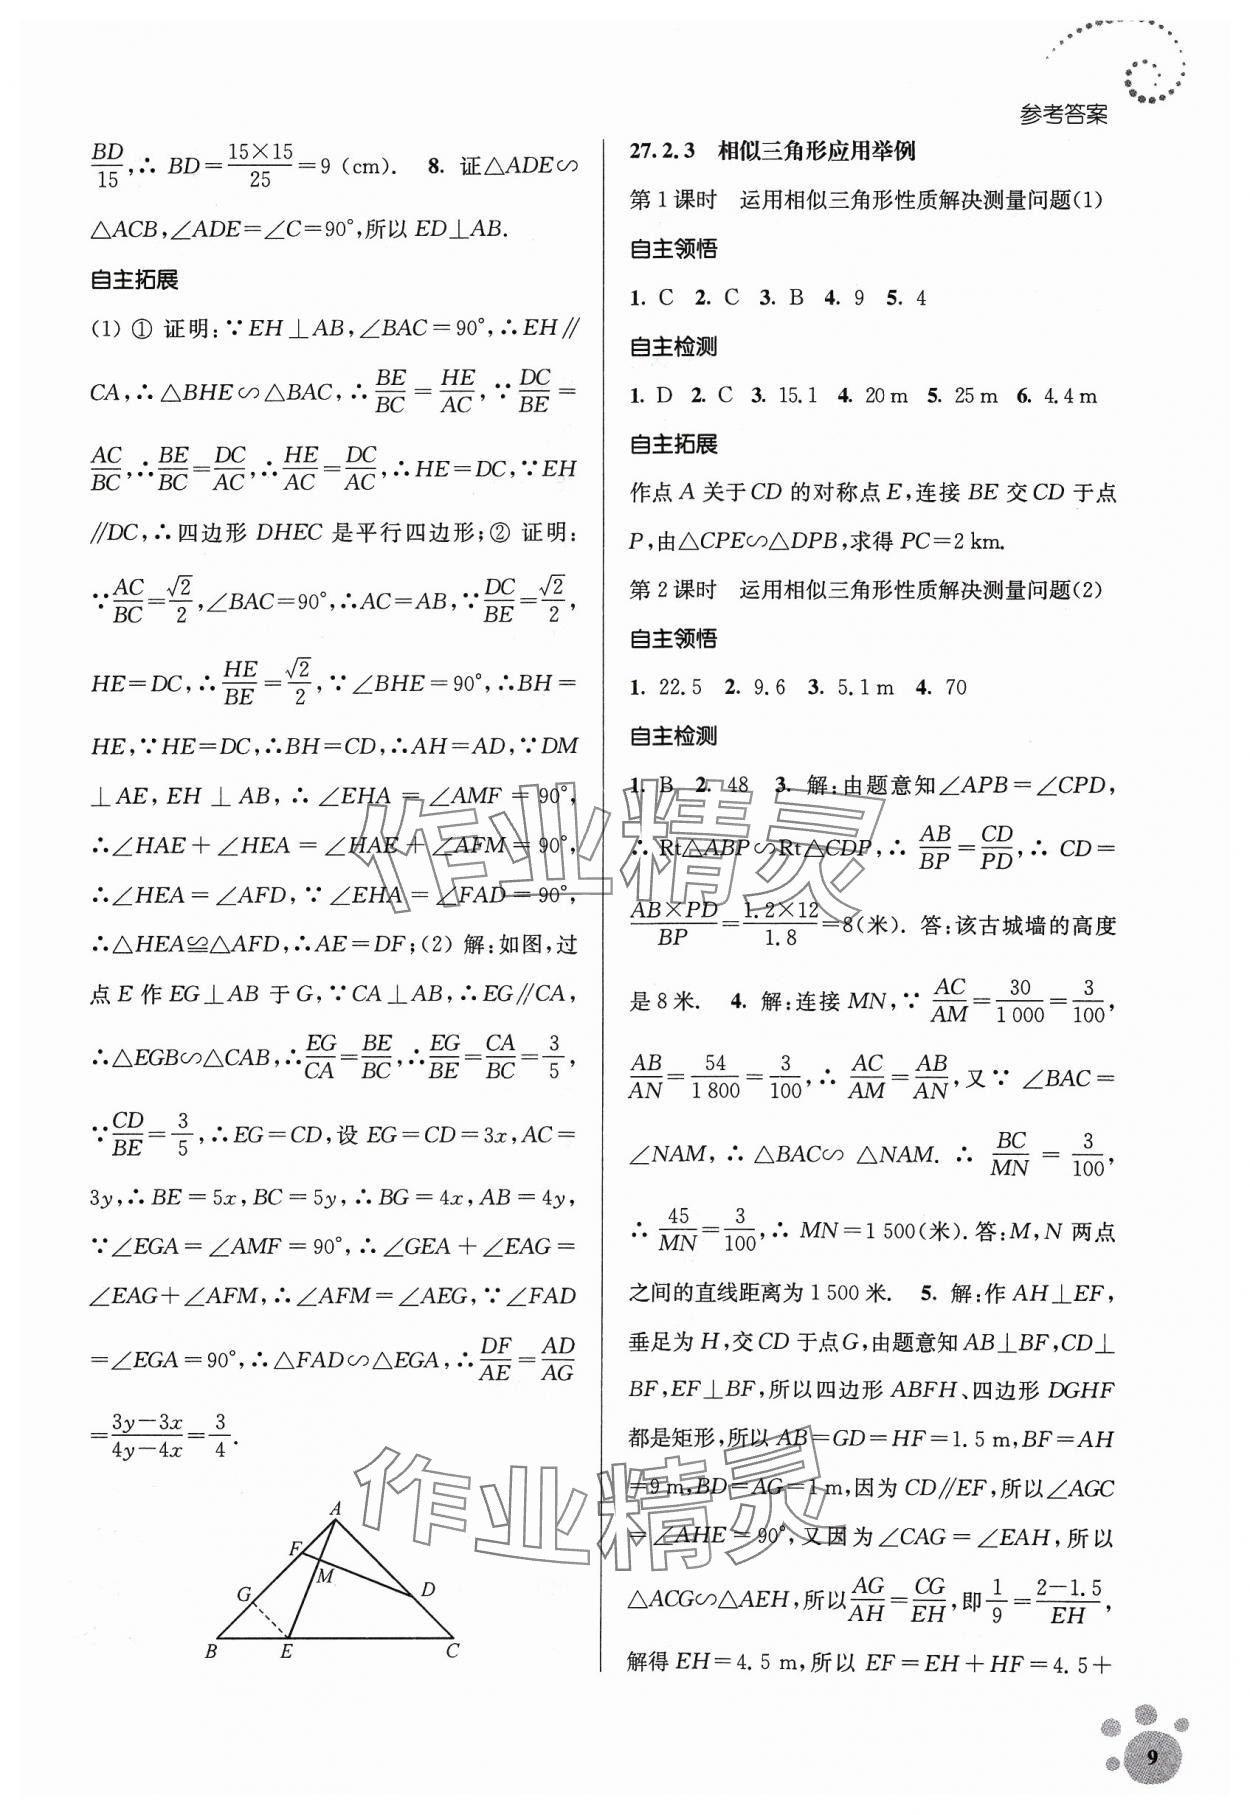 参考答案
BD/15,∴ BD=15×15/25=9 (cm). 8. 证△ADE∽
△ACB,∠ADE=∠C=90°,所以 ED⊥AB.
自主拓展
(1) ① 证明:∵EH⊥AB,∠BAC=90°,∴EH∥
CA,∴△BHE∽△BAC,∴BE/BC=HE/AC,∵DC/BE=
AC/BC,∴BE/BC=DC/AC,∴HE/AC=DC/AC,∴HE=DC,∵EH
∥DC,∴四边形 DHEC 是平行四边形;② 证明:
∵AC/BC=√2/2,∠BAC=90°,∴AC=AB,∵DC/BE=√2/2,
HE=DC,∴HE/BE=√2/2,∵∠BHE=90°,∴BH=
HE,∵HE=DC,∴BH=CD,∴AH=AD,∵DM
⊥AE,EH⊥AB,∴∠EHA=∠AMF=90°,
∴∠HAE+∠HEA=∠HAE+∠AFM=90°,
∴∠HEA=∠AFD,∵∠EHA=∠FAD=90°,
∴△HEA≌△AFD,∴AE=DF;(2) 解:如图,过
点 E 作 EG⊥AB 于 G,∵CA⊥AB,∴EG∥CA,
∴△EGB∽△CAB,∴EG/CA=BE/BC,∴EG/BE=CA/BC=3/5,
∵CD/BE=3/5,∴EG=CD,设 EG=CD=3x,AC=
3y,∴BE=5x,BC=5y,∴BG=4x,AB=4y,
∵∠EGA=∠AMF=90°,∴∠GEA+∠EAG=
∠EAG+∠AFM,∴∠AFM=∠AEG,∵∠FAD
=∠EGA=90°,∴△FAD∽△EGA,∴DF/AE=AD/AG
=3y-3x/4y-4x=3/4.
A
F
M
G
D
B
E
C
27.2.3 相似三角形应用举例
第1课时 运用相似三角形性质解决测量问题(1)
自主领悟
1. C 2. C 3. B 4. 9 5. 4
自主检测
1. D 2. C 3. 15.1 4. 20 m 5. 25 m 6. 4.4 m
自主拓展
作点 A 关于 CD 的对称点 E,连接 BE 交 CD 于点
P,由△CPE∽△DPB,求得 PC=2 km.
第2课时 运用相似三角形性质解决测量问题(2)
自主领悟
1. 22.5 2. 9.6 3. 5.1 m 4. 70
自主检测
1. B 2. 48 3. 解:由题意知∠APB=∠CPD,
∴Rt△ABP∽Rt△CDP,∴AB/BP=CD/PD,∴CD=
AB×PD/BP=1.2×12/1.8=8(米). 答:该古城墙的高度
是 8 米. 4. 解:连接 MN,∵AC/AM=30/1 000=3/100,
AB/AN=54/1 800=3/100,∴AC/AM=AB/AN,又∵∠BAC=
∠NAM,∴△BAC∽△NAM.∴BC/MN=3/100,
∴45/MN=3/100,∴MN=1 500(米).答:M,N 两点
之间的直线距离为 1 500 米. 5. 解:作 AH⊥EF,
垂足为 H,交 CD 于点 G,由题意知 AB⊥BF,CD⊥
BF,EF⊥BF,所以四边形 ABFH、四边形 DGHF
都是矩形,所以 AB=GD=HF=1.5 m,BF=AH
=9 m,BD=AG=1 m,因为 CD∥EF,所以∠AGC
=∠AHE=90°,又因为∠CAG=∠EAH,所以
△ACG∽△AEH,所以AG/AH=CG/EH,即1/9=2-1.5/EH,
解得 EH=4.5 m,所以 EF=EH+HF=4.5+
作业精灵
作业精灵
9